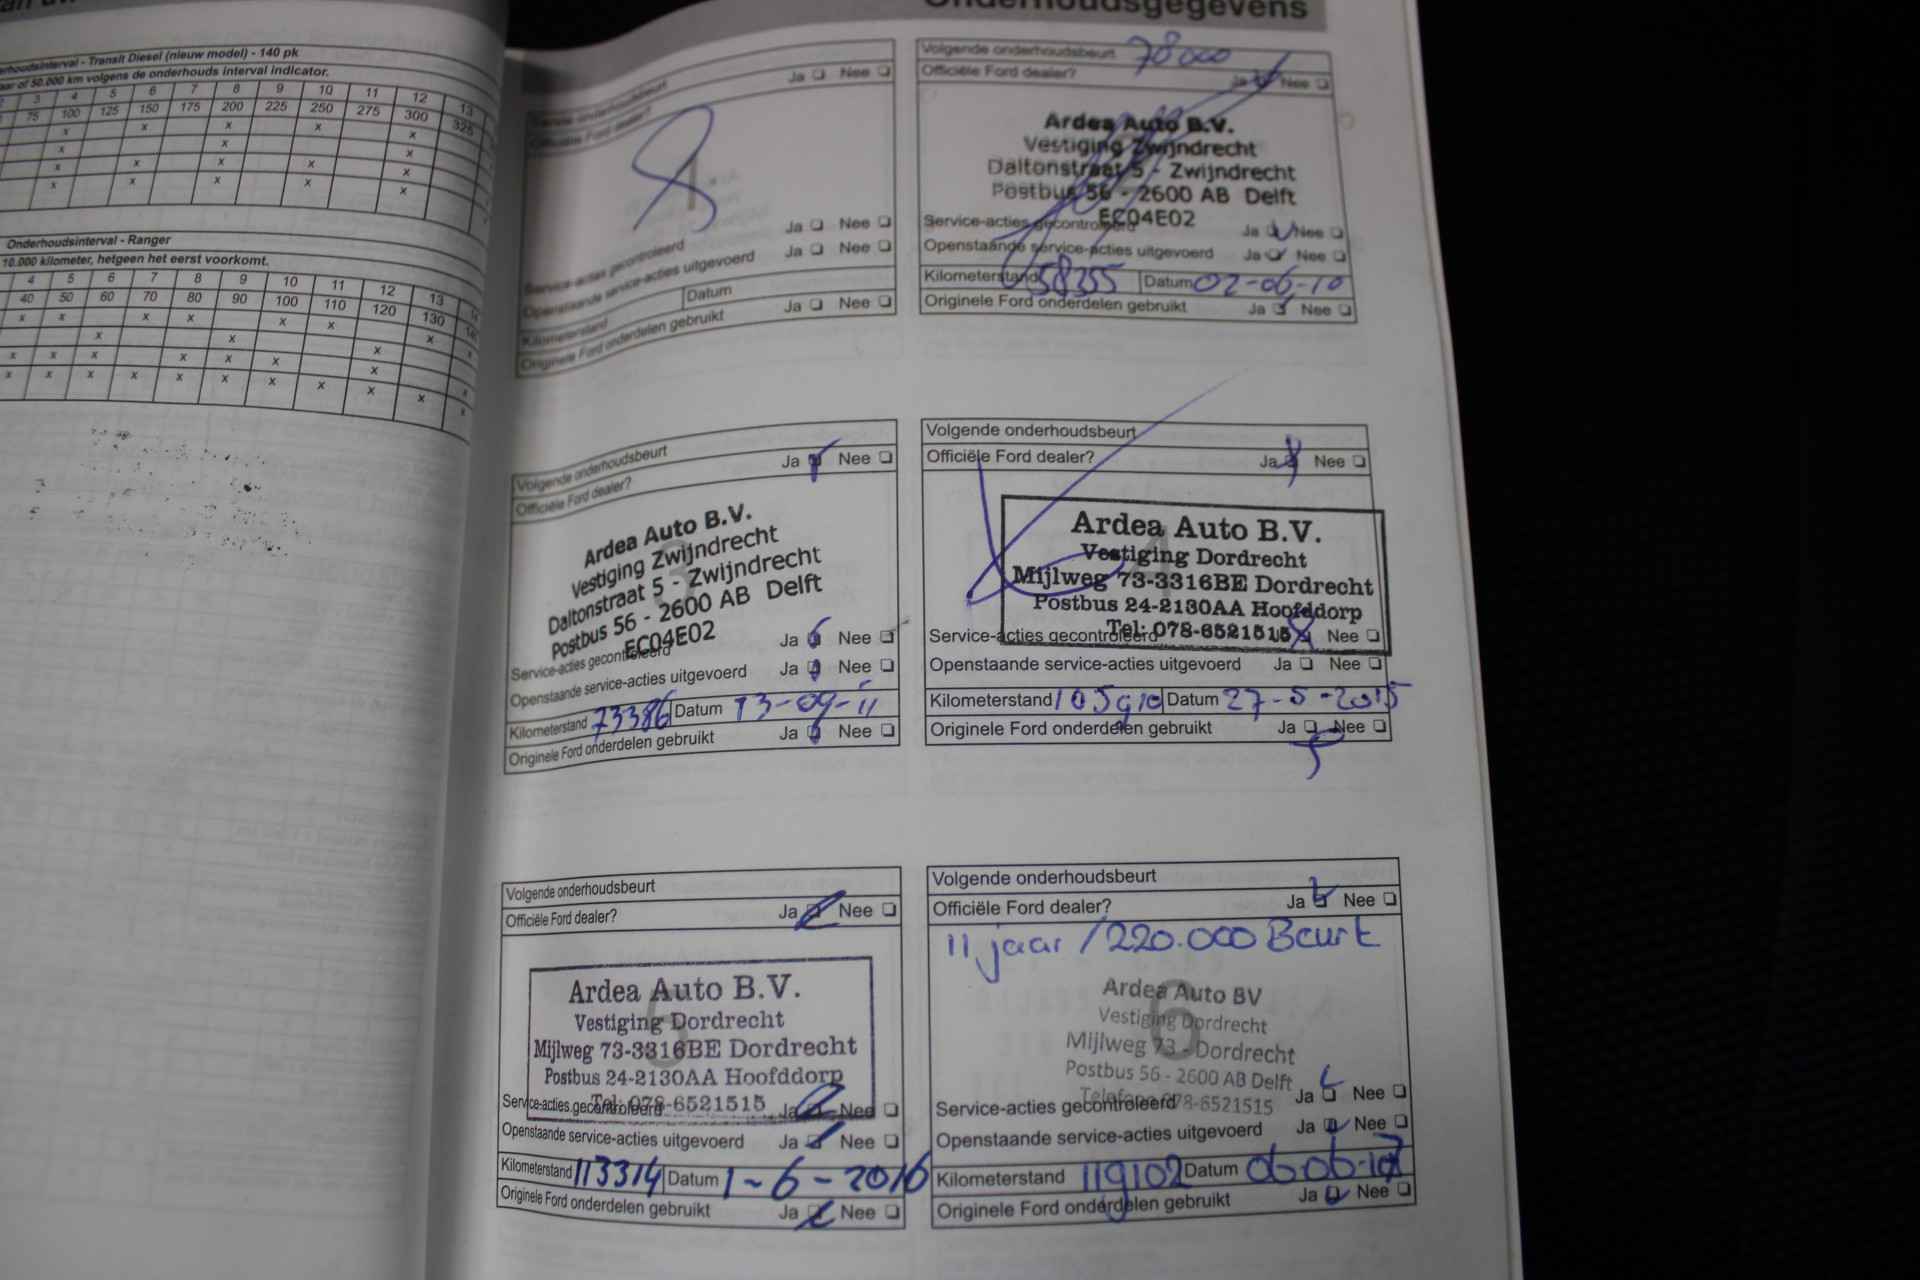 Onderhoudsinterval - Transit Diesel (nieuw model) - 140 pk
aar of 50.000 km volgens de onderhouds interval indicator.
3 4 5 6 7 8 9 10 11 12 13
75 100 125 150 175 200 225 250 275 300 325
x x x x x
x x x
x x x x x
x x x x x
Onderhoudsinterval - Ranger
10.000 kilometer, hetgeen het eerst voorkomt.
4 5 6 7 8 9 10 11 12 13
40 50 60 70 80 90 100 110 120 130
x x x x x x x
x x x
x x x x x x x
x x x x x x x x x x x
Onderhoudsgegevens
Volgende onderhoudsbeurt
Officiële Ford dealer? Ja Nee
1
Service-acties gecontroleerd Ja Nee
Openstaande service-acties uitgevoerd Ja Nee
Kilometerstand Datum
Originele Ford onderdelen gebruikt Ja Nee
Volgende onderhoudsbeurt 78000
Officiële Ford dealer? Ja Nee
Ardea Auto B.V.
Vestiging Zwijndrecht
Daltonstraat 5 - Zwijndrecht
Postbus 56 - 2600 AB Delft
EC04E02
Service-acties gecontroleerd Ja Nee
Openstaande service-acties uitgevoerd Ja Nee
Kilometerstand 58355 Datum 02-06-10
Originele Ford onderdelen gebruikt Ja Nee
Volgende onderhoudsbeurt
Officiële Ford dealer? Ja Nee
3
Ardea Auto B.V.
Vestiging Zwijndrecht
Daltonstraat 5 - Zwijndrecht
Postbus 56 - 2600 AB Delft
EC04E02
Service-acties gecontroleerd Ja Nee
Openstaande service-acties uitgevoerd Ja Nee
Kilometerstand 73386 Datum 13-09-11
Originele Ford onderdelen gebruikt Ja Nee
Volgende onderhoudsbeurt
Officiële Ford dealer? Ja Nee
4
Ardea Auto B.V.
Vestiging Dordrecht
Mijlweg 73-3316BE Dordrecht
Postbus 24-2130AA Hoofddorp
Tel: 078-6521515
Service-acties gecontroleerd Nee
Openstaande service-acties uitgevoerd Ja Nee
Kilometerstand 105910 Datum 27-5-2015
Originele Ford onderdelen gebruikt Ja Nee
Volgende onderhoudsbeurt
Officiële Ford dealer? Ja Nee
5
Ardea Auto B.V.
Vestiging Dordrecht
Mijlweg 73-3316BE Dordrecht
Postbus 24-2130AA Hoofddorp
Tel: 078-6521515
Service-acties gecontroleerd Ja Nee
Openstaande service-acties uitgevoerd Ja Nee
Kilometerstand 113314 Datum 1-6-2016
Originele Ford onderdelen gebruikt Ja Nee
Volgende onderhoudsbeurt
Officiële Ford dealer? Ja Nee
11 jaar / 220.000 Beurt
6
Ardea Auto BV
Vestiging Dordrecht
Mijlweg 73 - Dordrecht
Postbus 56 - 2600 AB Delft
Telefoon 078-6521515
Service-acties gecontroleerd Ja Nee
Openstaande service-acties uitgevoerd Ja Nee
Kilometerstand 119102 Datum 06-06-17
Originele Ford onderdelen gebruikt Ja Nee